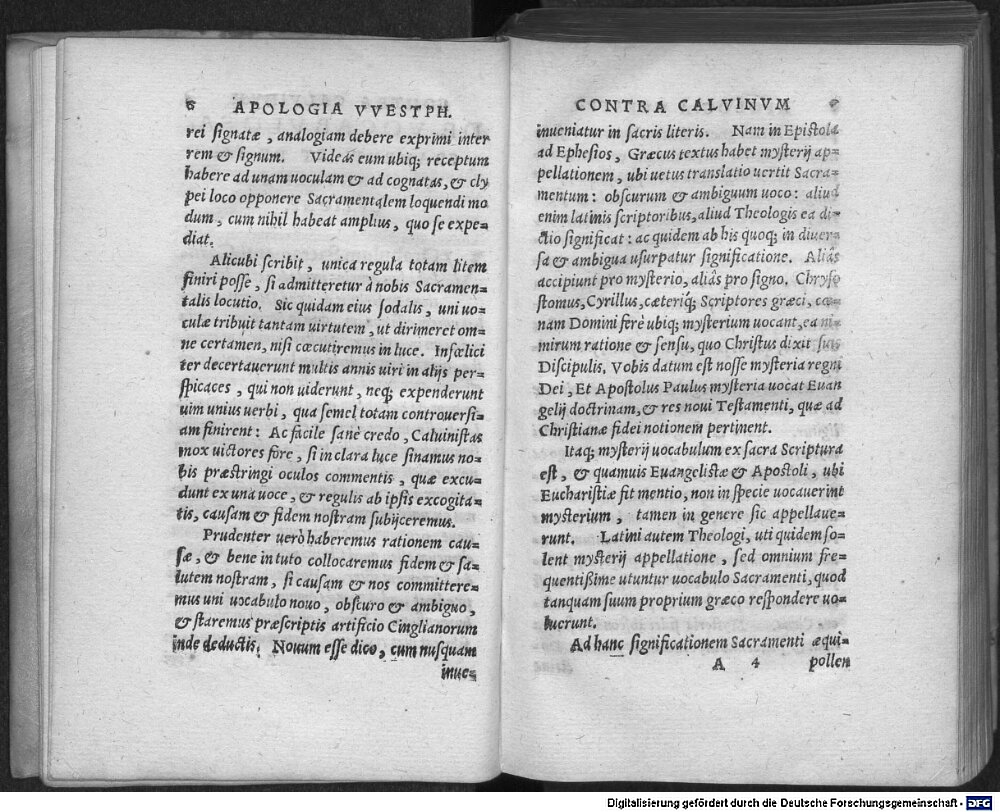 6 APOLOGIA VVESTPH.
rei signatæ, analogiam debere exprimi inter
rem & signum. Videas eum ubiq; receptum
habere ad unam uoculam & ad cognatas, & cly
pei loco opponere Sacramentalem loquendi mo
dum, cum nihil habeat amplius, quo se expe=
diat.
Alicubi scribit, unica regula totam litem
finiri posse, si admitteretur à nobis Sacramen=
talis locutio. Sic quidam eius sodalis, uni uo=
culæ tribuit tantam uirtutem, ut dirimeret om=
ne certamen, nisi cœcutiremus in luce. Infœlici
ter decertauerunt multis annis uiri in alijs per=
spicaces, qui non uiderunt, neq; expenderunt
uim unius uerbi, qua semel totam controuersi=
am finirent: Ac facile sanè credo, Caluinistas
mox uictores fore, si in clara luce sinamus no=
bis præstringi oculos commentis, quæ excu=
dunt ex una uoce, & regulis ab ipsis excogita=
tis, causam & fidem nostram subijceremus.
Prudenter uerò haberemus rationem cau=
sæ, & bene in tuto collocaremus fidem & sa=
lutem nostram, si causam & nos committere=
mus uni uocabulo nouo, obscuro & ambiguo,
& staremus præscriptis artificio Cinglianorum
inde deductis. Nouum esse dico, cum nusquam
inue=
CONTRA CALVINVM
inueniatur in sacris literis. Nam in Epistola
ad Ephesios, Græcus textus habet mysterij ap=
pellationem, ubi uetus translatio uertit Sacra=
mentum: obscurum & ambiguum uoco: aliud
enim latinis scriptoribus, aliud Theologis ea di=
ctio significat: ac quidem ab his quoq; in diuer=
sa & ambigua usurpatur significatione. Aliâs
accipiunt pro mysterio, aliâs pro signo. Chryso
stomus, Cyrillus, cæteriq; Scriptores græci, cœ=
nam Domini ferè ubiq; mysterium uocant, ea ni=
mirum ratione & sensu, quo Christus dixit suis
Discipulis, Vobis datum est nosse mysteria regni
Dei, Et Apostolus Paulus mysteria uocat Euan
gelij doctrinam, & res noui Testamenti, quæ ad
Christianæ fidei notionem pertinent.
Itaq; mysterij uocabulum ex sacra Scriptura
est, & quamuis Euangelistæ & Apostoli, ubi
Eucharistiæ fit mentio, non in specie uocauerint
mysterium, tamen in genere sic appellaue=
runt. Latini autem Theologi, uti quidem so=
lent mysterij appellatione, sed omnium fre=
quentißime utuntur uocabulo Sacramenti, quod
tanquam suum proprium græco respondere uo=
luerunt.
Ad hanc significationem Sacramenti æqui=
A 4 pollen
Digitalisierung gefördert durch die Deutsche Forschungsgemeinschaft - DFG